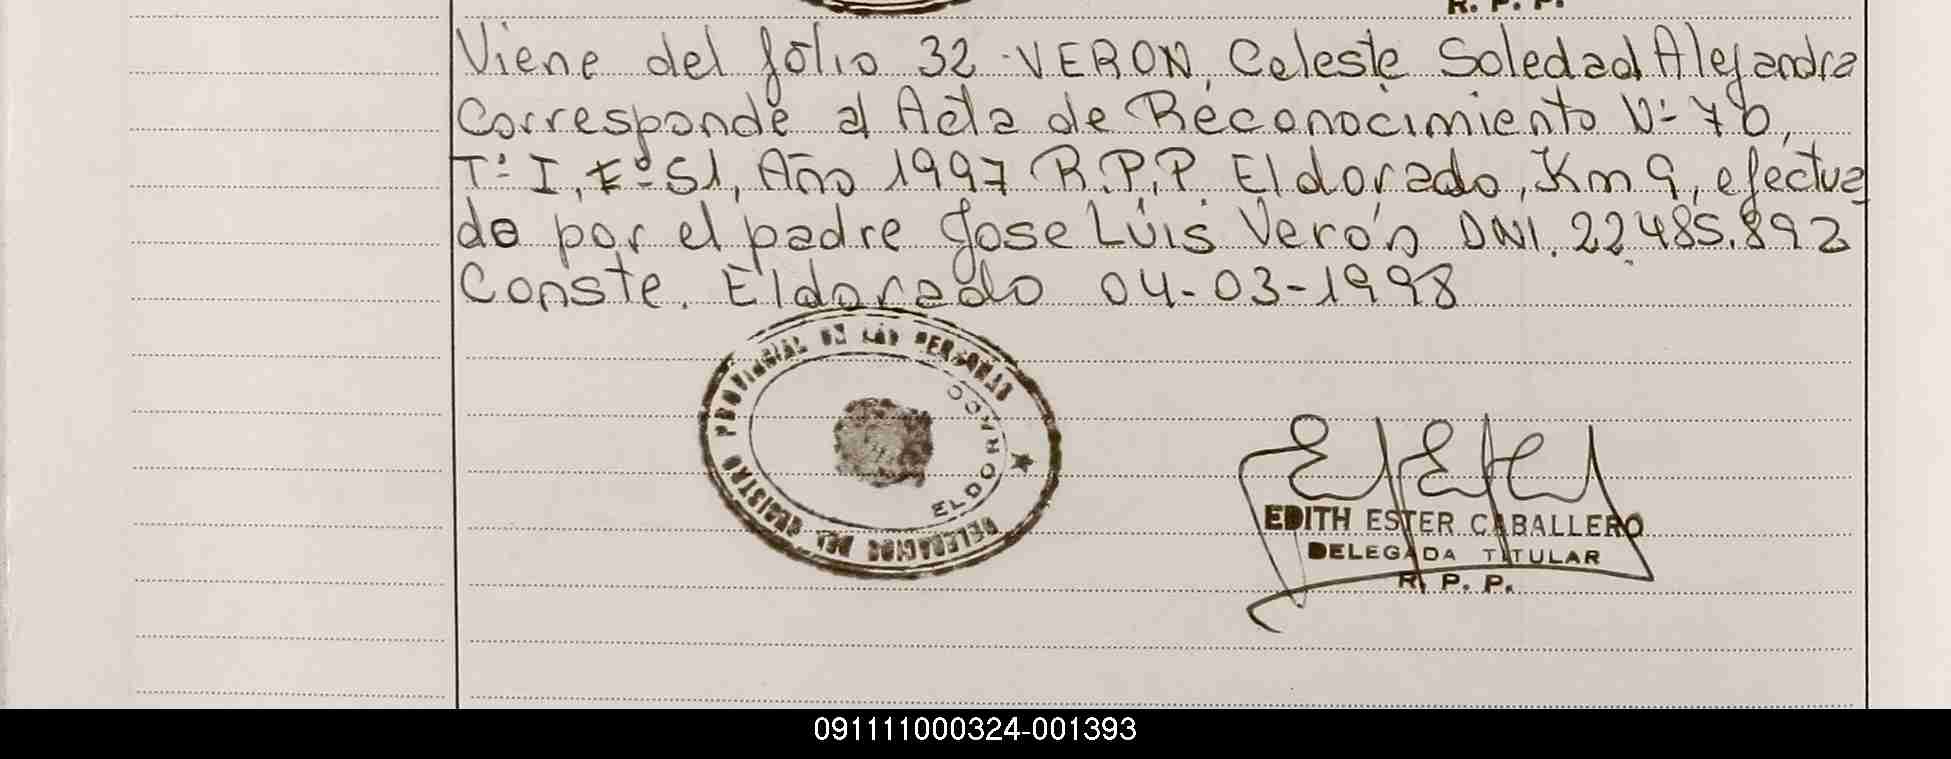 R. P. P.
Viene del folio 32 - VERON, Celeste Soledad Alejandra
Corresponde al Acta de Reconocimiento Nº 76,
Tº I, Fº 51, Año 1997 R.P.P. Eldorado, Km 9, efectua
do por el padre Jose Luis Verón DNI. 22.485.892
Conste. Eldorado 04-03-1998
DELEGACION DEL REGISTRO PROVINCIAL DE LAS PERSONAS
ELDORADO
EDITH ESTER CABALLERO
DELEGADA TITULAR
R. P. P.
091111000324-001393